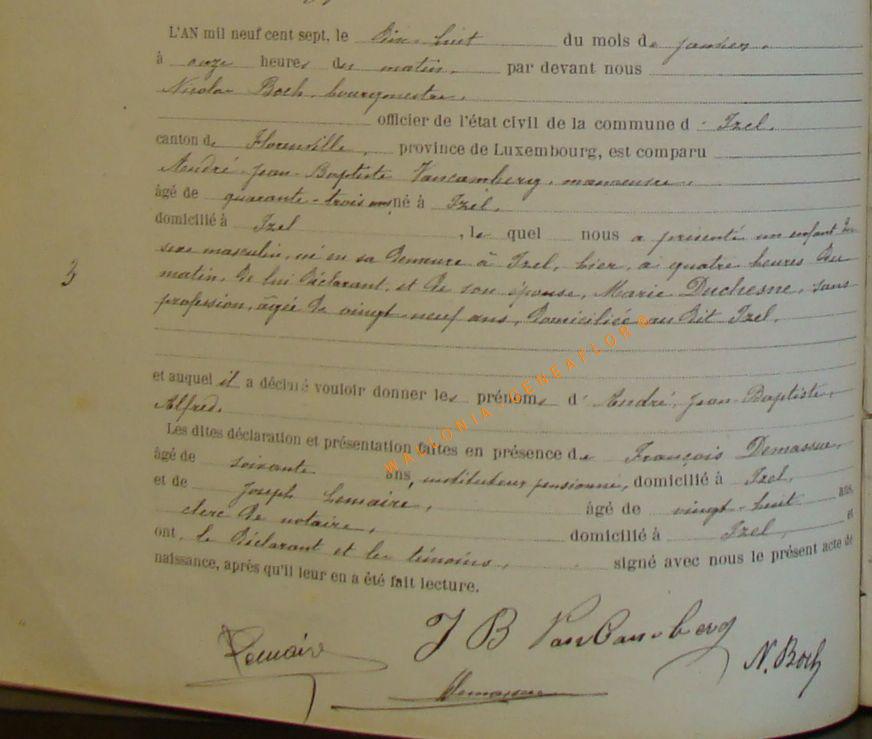 L'AN mil neuf cent sept, le dix-huit du mois de janvier.
à onze heures du matin, par devant nous
Nicolas Boch, bourgmestre,
officier de l'état civil de la commune d'Izel,
canton de Florenville, province de Luxembourg, est comparu
André-Jean-Baptiste Vancamberg, manoeuvre,
âgé de quarante-trois ans, né à Izel,
domicilié à Izel, lequel nous a présenté un enfant du
3
sexe masculin, né en sa demeure à Izel, hier, à quatre heures du
matin, de lui déclarant, et de son épouse, Marie Duchesne, sans
profession, âgée de vingt neuf ans, domiciliée au dit Izel,
et auquel il a déclaré vouloir donner les prénoms d'André, Jean-Baptiste,
Alfred.
Les dites déclaration et présentation faites en présence de François Demasure,
âgé de soixante ans, instituteur pensionné, domicilié à Izel,
et de Joseph Lemaire, âgé de vingt-huit ans
clerc de notaire, domicilié à Izel, et
ont, le déclarant et les témoins, signé avec nous le présent acte de
naissance, après qu'il leur en a été fait lecture.
J B VanCamberg
Lemaire
N. Boch
Demasure
WALLONIA.GENEAFLOR©